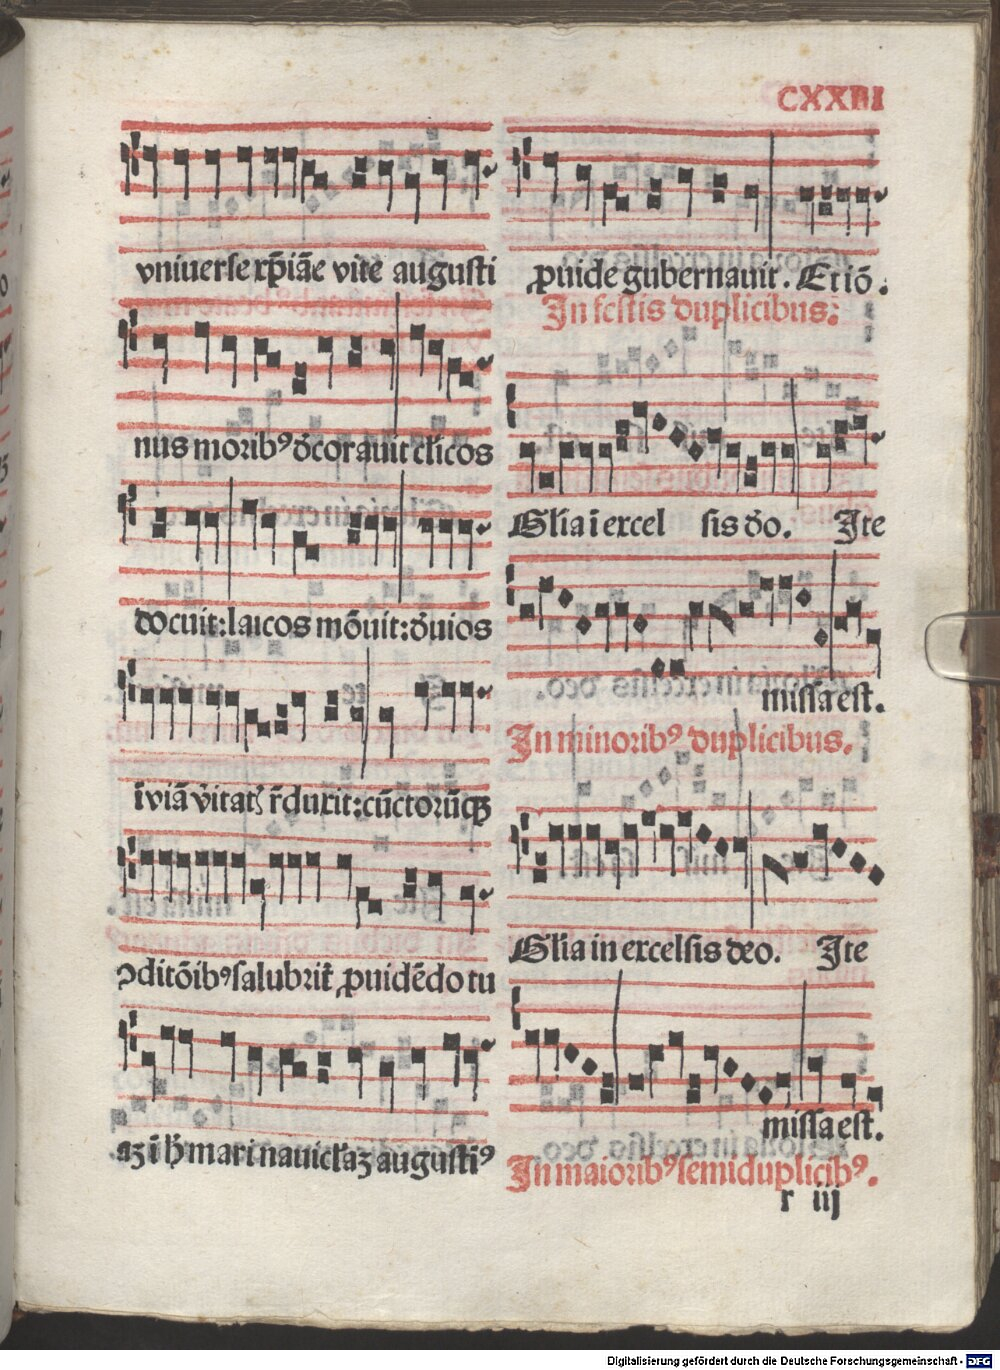 CXXIII
vniuerse xp̄iāe vite augusti
nus morib⁹ d̄corauit cl̄icos
docuit: laicos mōuit: d̄uios
ī viā v̄itat᷒ r̄duxit: cūctorūqꝫ
ↄditōib⁹ salubrit̄ ꝓuidēdo tu
aꝫ ī h̄ mari nauiclāꝫ augusti⁹
ꝓuide gubernauit. Et iō.
In festis duplicibus.
Gl̄ia i excel sis d̄o. Ite
missa est.
In minorib⁹ duplicibus.
Gl̄ia in excelsis deo. Ite
missa est.
In maiorib⁹ semiduplicib⁹.
r iij
Digitalisierung gefördert durch die Deutsche Forschungsgemeinschaft - DFG